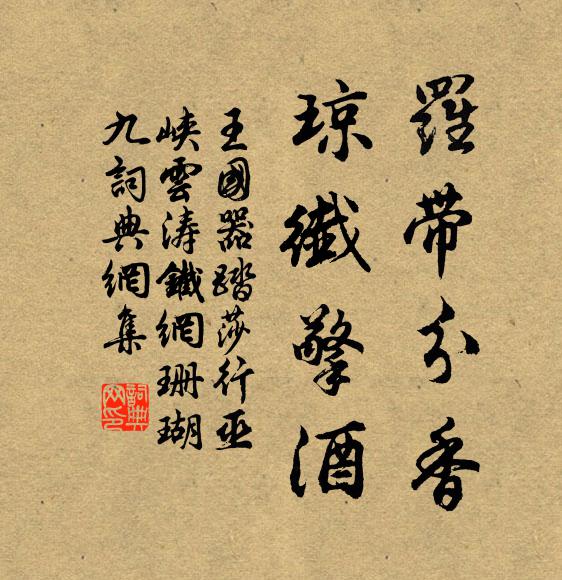 羅帶分香
瓊纖擎酒
王國器踏莎行巫
峽雲涛鐵網珊瑚
九詞典網集
詞典
网印